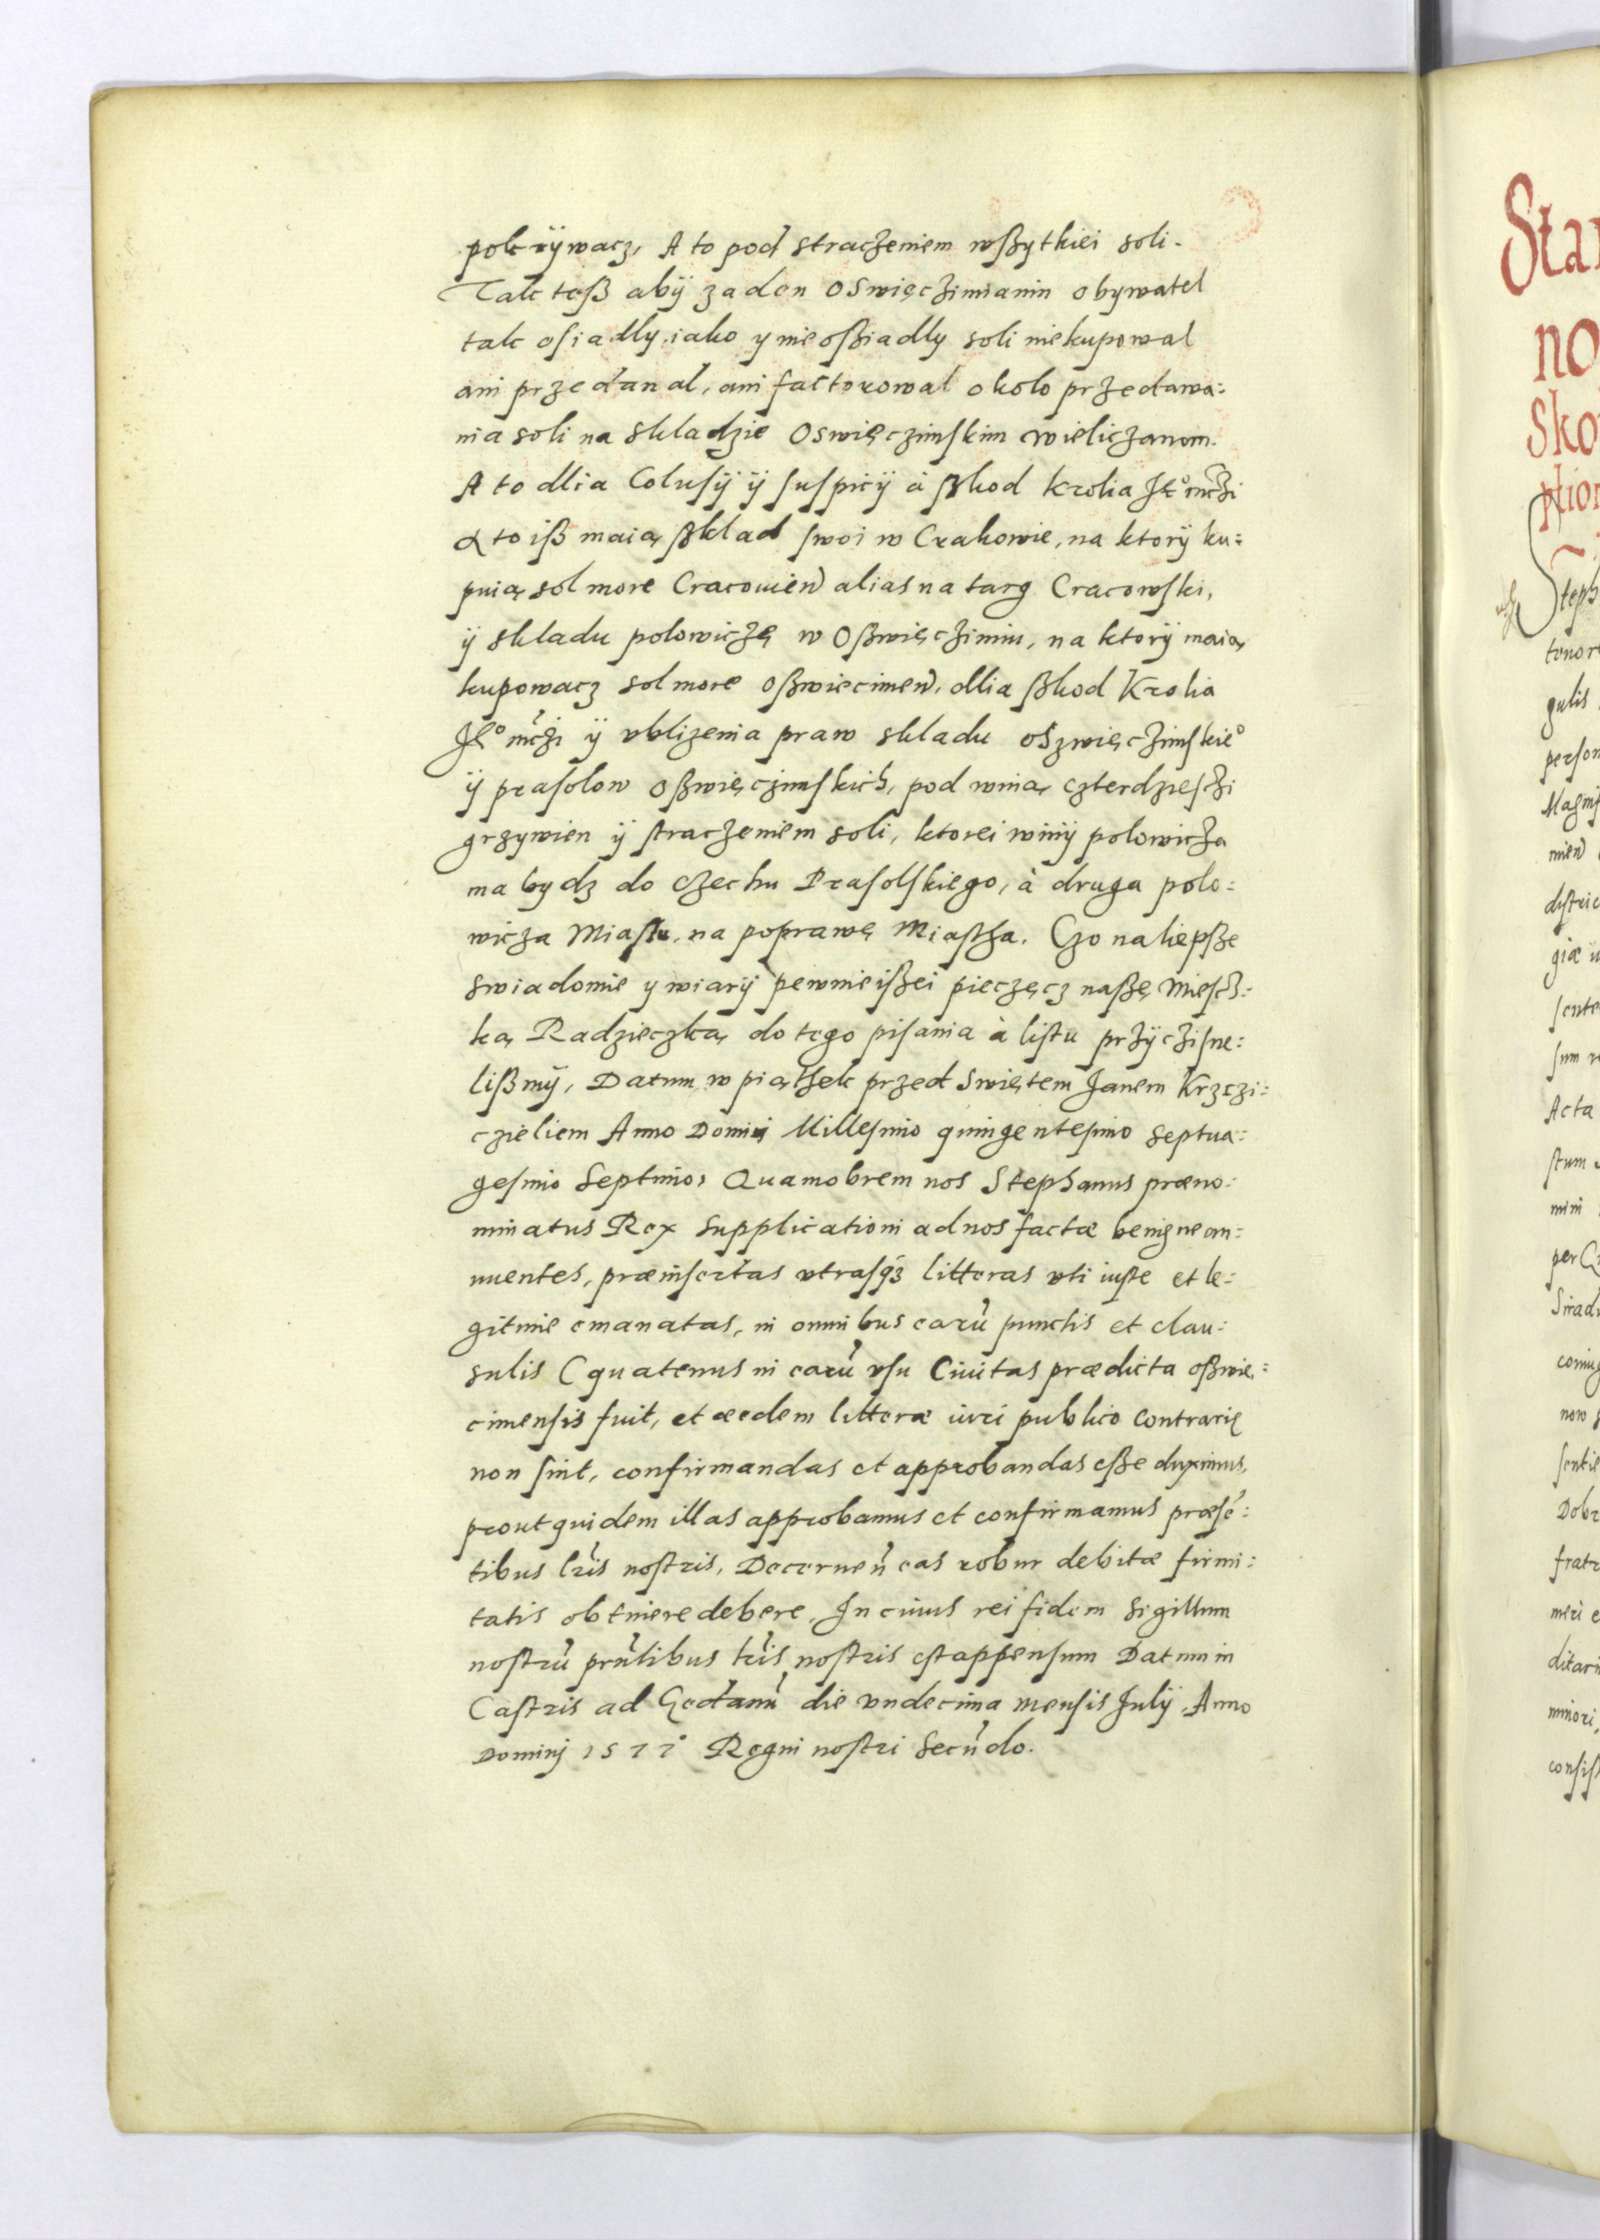 pokrÿwacz, A to pod straczeniem wßytkiei soli.
Tak teß abÿ zaden Oswięczimianin obywatel
tak osiadly iako y nieoßiadly soli niekupowal
ani przedawal, ani factorowal okolo przedawa:
nia soli na skladzie Oswięczimskim wieliczanom.
A to dlia Colusÿ ÿ suspicÿ à ßkod Krolia Jeº mczi
A to iß maią ßklad swoi w Crakowie, na ktorÿ ku:
puią sol more Cracouien alias na targ Cracowski,
ÿ skladu polowiczę w Oßwięczimiu, na ktorÿ maią
kupowacz sol more oßwiecimen, dlia ßkod Krolia
Jeº mczi ÿ ubliżenia praw skladu oszwięczimskieº
ÿ prasolow oßwięczimskich, pod winą czterdzieschi
grzywien ÿ straczeniem soli, ktorei winÿ polowicza
ma bydz do czechu Prasolskiego, à druga polo:
wicza Miastu, na poprawę Miastha. Czo naliepsze
swiadomie y wiarÿ pewnieißei pieczęcz naßę Miesch:
ką Radzieczką do tego pisania à listu przÿczisne:
lißmÿ, Datum w piąthek przed Swiętem Janem Krzczi:
czieliem Anno Domini Millesimo quingentesimo septua:
gesimo Septimo, Quamobrem nos Stephanus præno:
minatus Rex Supplicationi ad nos factæ benigne an:
nuentes, præinsertas vtrasq3 litteras vti iuste et le:
gitime emanatas, in omnibus earū punctis et clau:
sulis (quatenus in earū vsu Ciuitas prædicta oßwie:
cimensis fuit, et eædem litteræ iuri publico Contrarię
non sint, confirmandas et approbandas eße duximus,
prout quidem illas approbamus et confirmamus præsē:
tibus lris nostris, Decernen eas robur debitæ firmi:
tatis obtinere debere, In cuius rei fidem sigillum
nostrū pntibus lris nostris est appensum Datum in
Castris ad Gedanū die vndecima mensis Julÿ Anno
Dominj 1577º Regni nostri Secūdo.